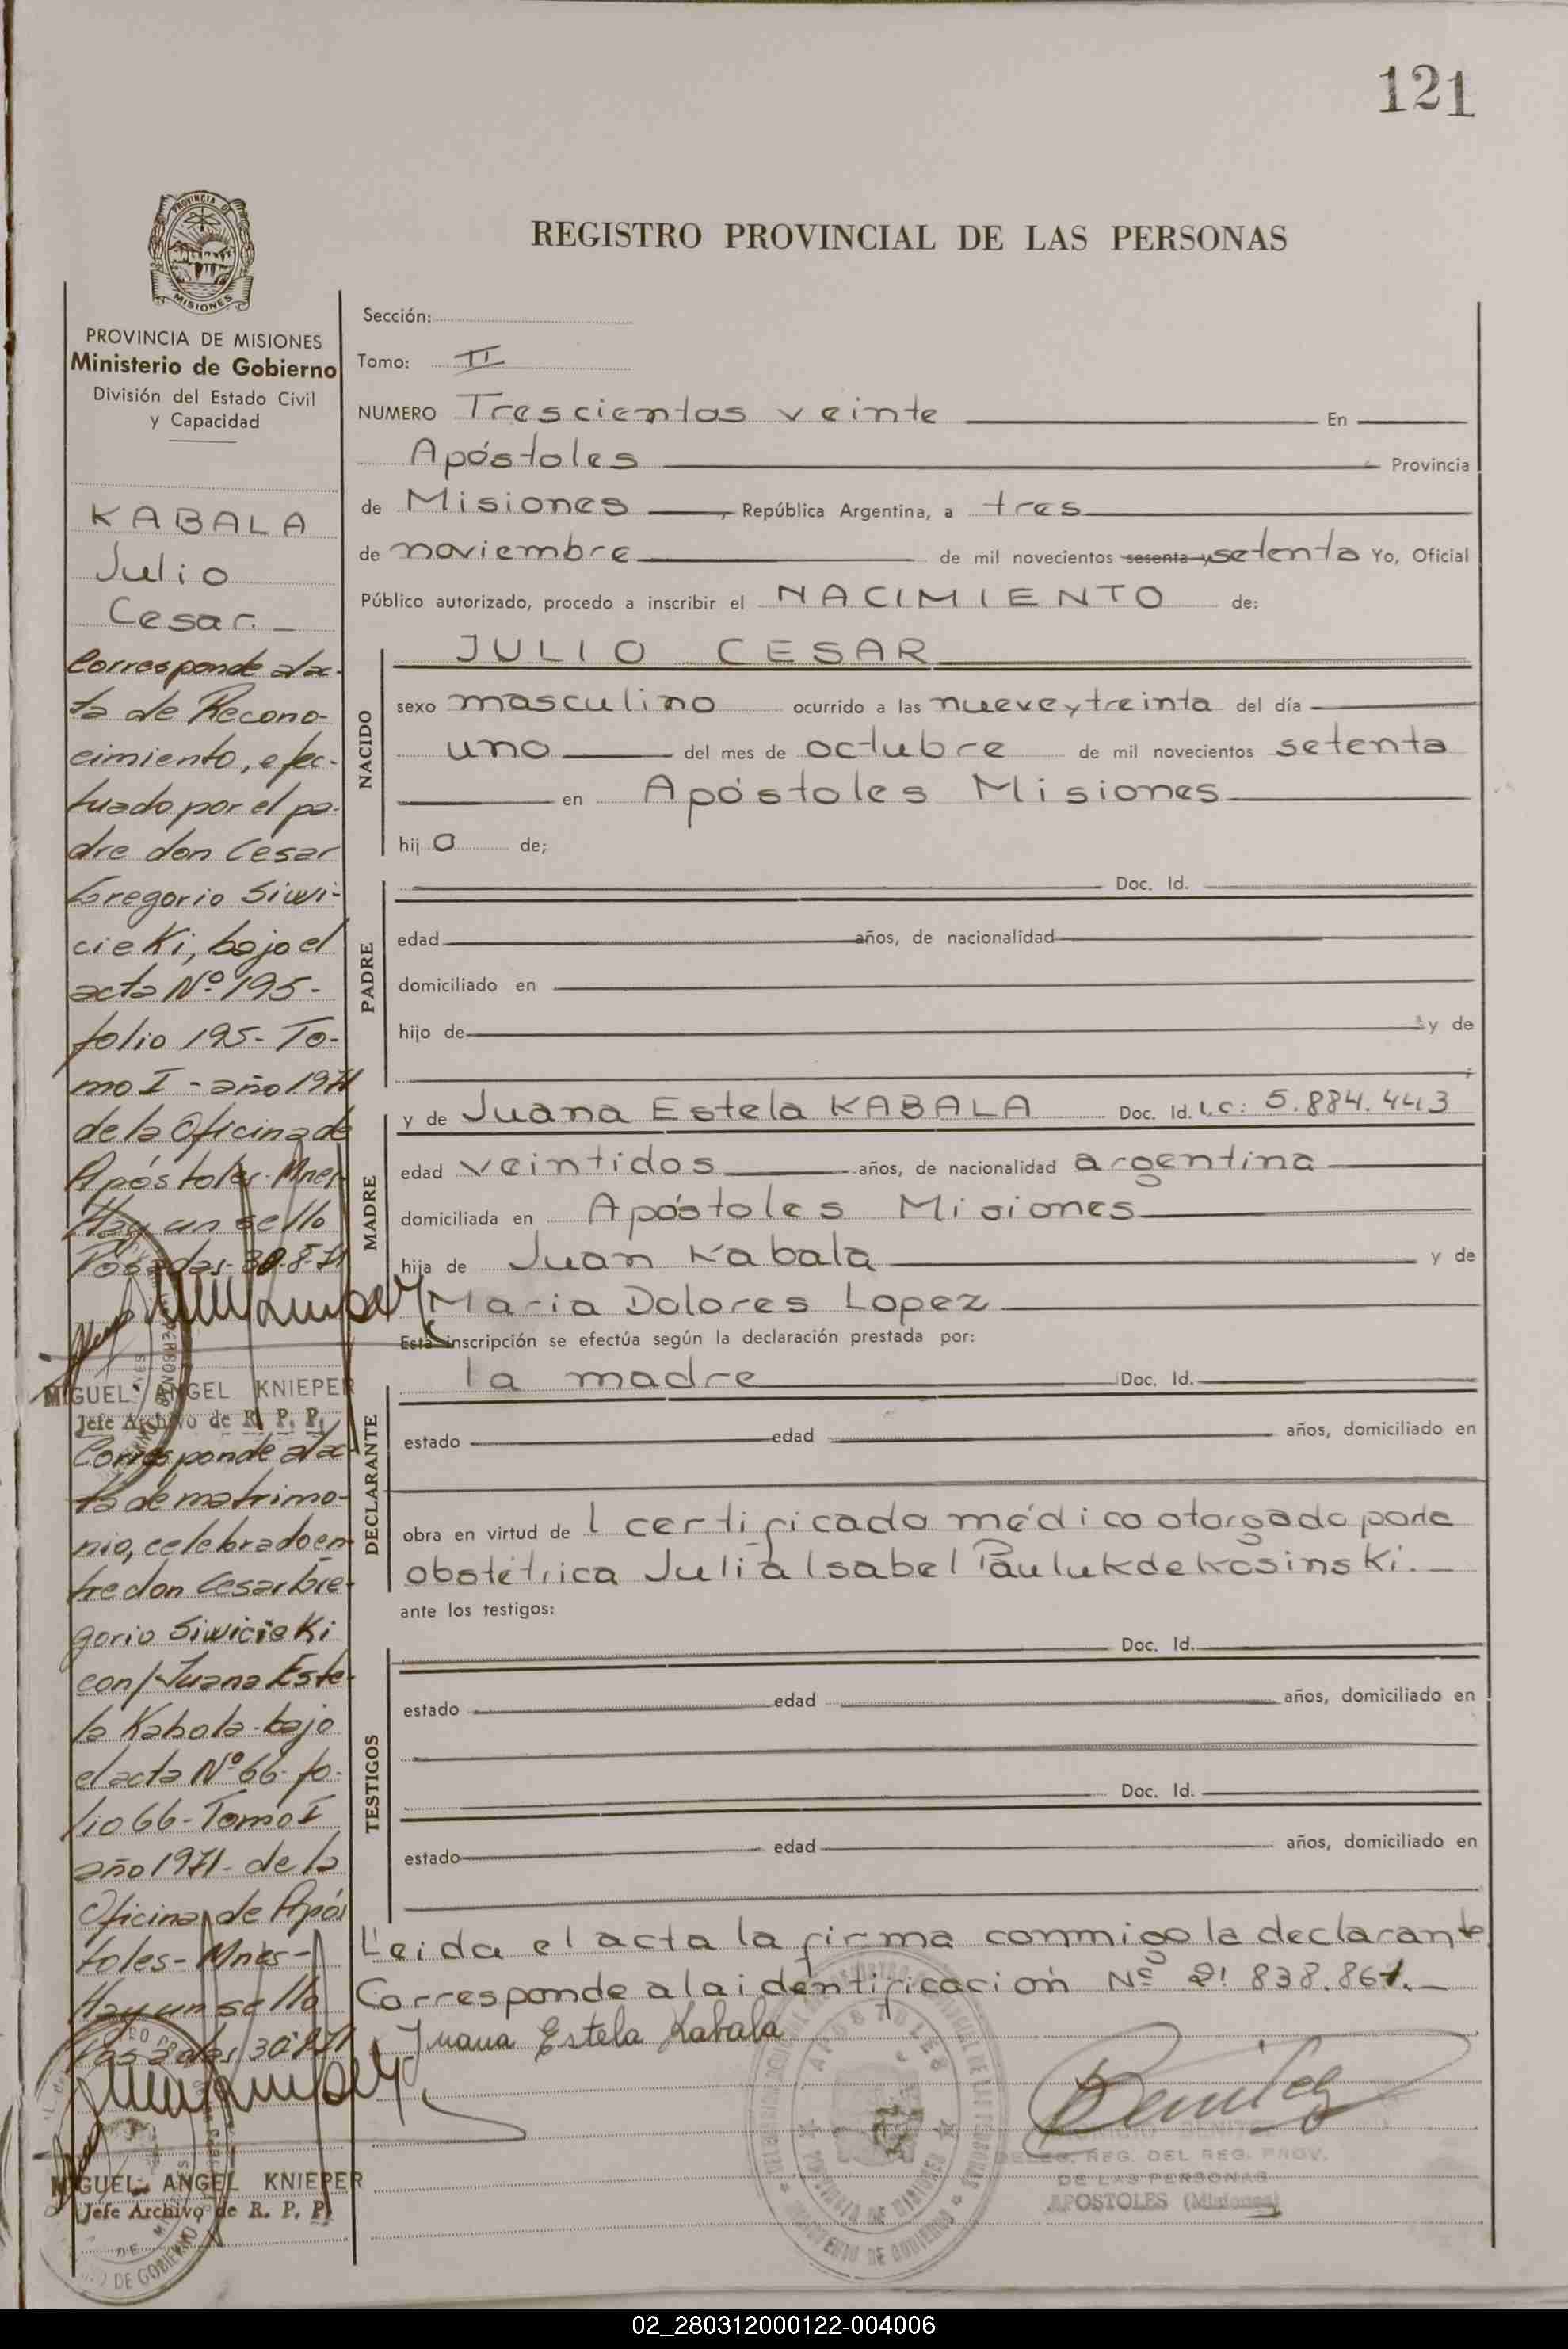 121
PROVINCIA DE
MISIONES
REGISTRO PROVINCIAL DE LAS PERSONAS
PROVINCIA DE MISIONES
Ministerio de Gobierno
División del Estado Civil
y Capacidad
KABALA
Julio
Cesar.-
Corresponde al ac-
ta de Recono-
cimiento, efec-
tuado por el pa-
dre don Cesar
Gregorio Siwi-
cieKi, bajo el
acta Nº 195-
folio 195- To-
mo I - año 1971
de la Oficina de
Apóstoles- Mnes-
Hay un sello
Posadas- 30-8-71
MIGUEL ANGEL KNIEPER
Jefe Archivo de R. P. P.
Corresponde al ac-
ta de matrimo-
nio, celebrado en-
tre don Cesar Gre-
gorio SiwicieKi
con/ Juana Este-
la Kabala- bajo
el acta Nº 66- fo-
lio 66- Tomo I
año 1971- de la
Oficina de Após
toles- Mnes-
Hay un sello
Posadas 30-8-71
MIGUEL ANGEL KNIEPER
Jefe Archivo de R. P. P.
Sección:
Tomo: II
NUMERO Trescientos veinte En
Apóstoles Provincia
de Misiones, República Argentina, a tres
de noviembre de mil novecientos sesenta y setenta Yo, Oficial
Público autorizado, procedo a inscribir el NACIMIENTO de:
NACIDO
JULIO CESAR
sexo masculino ocurrido a las nueve y treinta del día
uno del mes de octubre de mil novecientos setenta
en Apóstoles Misiones
hij o de;
PADRE
Doc. Id.
edad años, de nacionalidad
domiciliado en
hijo de y de
;
MADRE
y de Juana Estela KABALA Doc. Id. L.C: 5.884.443
edad veintidos años, de nacionalidad argentina
domiciliada en Apóstoles Misiones
hija de Juan Kabala y de
Maria Dolores Lopez
Esta inscripción se efectúa según la declaración prestada por:
DECLARANTE
la madre Doc. Id.
estado edad años, domiciliado en
obra en virtud de l certificado médico otorgado por la
obstétrica Julia Isabel Pauluk de Kosinski.-
ante los testigos:
TESTIGOS
Doc. Id.
estado edad años, domiciliado en
Doc. Id.
estado edad años, domiciliado en
Leida el acta la firma conmigo la declarante
Corresponde a la identificación Nº 21.838.861.-
Juana Estela Kabala
Benitez
APOSTOLES
PROVINCIA DE MISIONES
MINISTERIO DE GOBIERNO
REG. DEL REG. PROV.
DE LAS PERSONAS
APOSTOLES (Misiones)
02_280312000122-004006